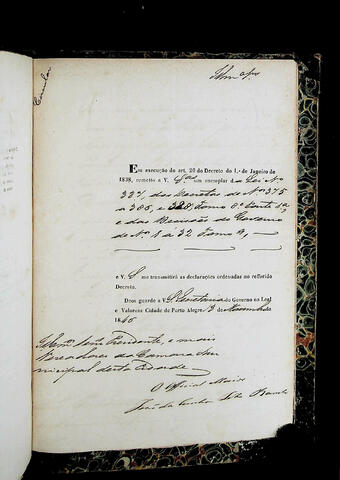 Circular
Illmos Snrs
Em execução do art. 20 do Decreto do 1.º de Janeiro de
1838, remetto a V. Sas um exemplar da Lei Nº
337, dos Decretos de Nº 375
a 385, e 328, Tomo 6º Parte 1ª,
e das Decisões do Governo
de Nº 1 a 32 Tomo 9,
e V. S me transmittirá as declarações ordenadas no referido
Decreto.
Deos guarde a V. S. Secretaria do Governo na Leal
e Valerosa Cidade de Porto Alegre 13 de Novembro
1846
Illmos Snrs Presidente, e mais
Vereadores da Camara Mu
nicipal desta Cidade
O Official Maior
João da Cunha Lobo Barreto